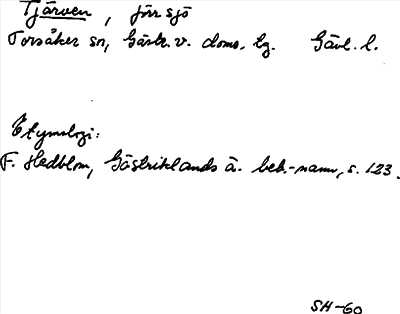 Tjärven, förr sjö
Torsåker sn, Gästr. v. doms. hg. Gävl. l.
Etymologi:
F. Hedblom, Gästriklands ä. beb.-namn, s. 123.
SH-60